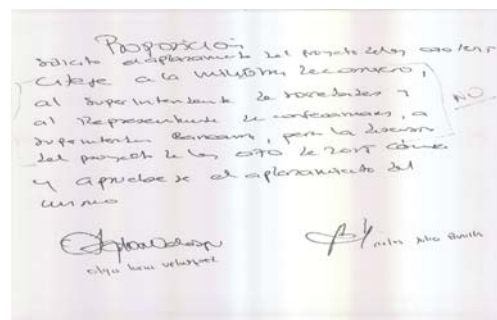 Proposición
Solicito aplazamiento del proyecto de ley 070/2015
Citese a la ministra de comercio,
al Superintendente de sociedades y
al Representante de confecamaras, a
superintendente Bancaria, para la discusion
del proyecto de ley 070 de 2015 cámara
y apruebese el aplazamiento del
mismo
NO
olga lucia velasquez